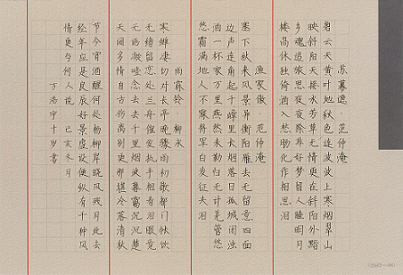 苏幕遮·范仲淹
碧云天黄叶地秋色连波波上寒烟翠山
映斜阳天接水芳草无情更在斜阳外黯
乡魂追旅思夜夜除非好梦留人睡明月
楼高休独倚酒入愁肠化作相思泪
渔家傲·范仲淹
塞下秋来风景异衡阳雁去无留意四面
边声连角起千嶂里长烟落日孤城闭浊
酒一杯家万里燕然未勒归无计羌管悠
悠霜满地人不寐将军白发征夫泪
雨霖铃 柳永
寒蝉凄切对长亭晚骤雨初歇都门帐饮
无绪留恋处兰舟催发执手相看泪眼竟
无语凝噎念去去千里烟波暮霭沉沉楚
天阔多情自古伤离别更那堪冷落清秋
节今宵酒醒何处杨柳岸晓风残月此去
经年应是良辰好景虚设便纵有千种风
情更与何人说 己亥冬月
十岁书